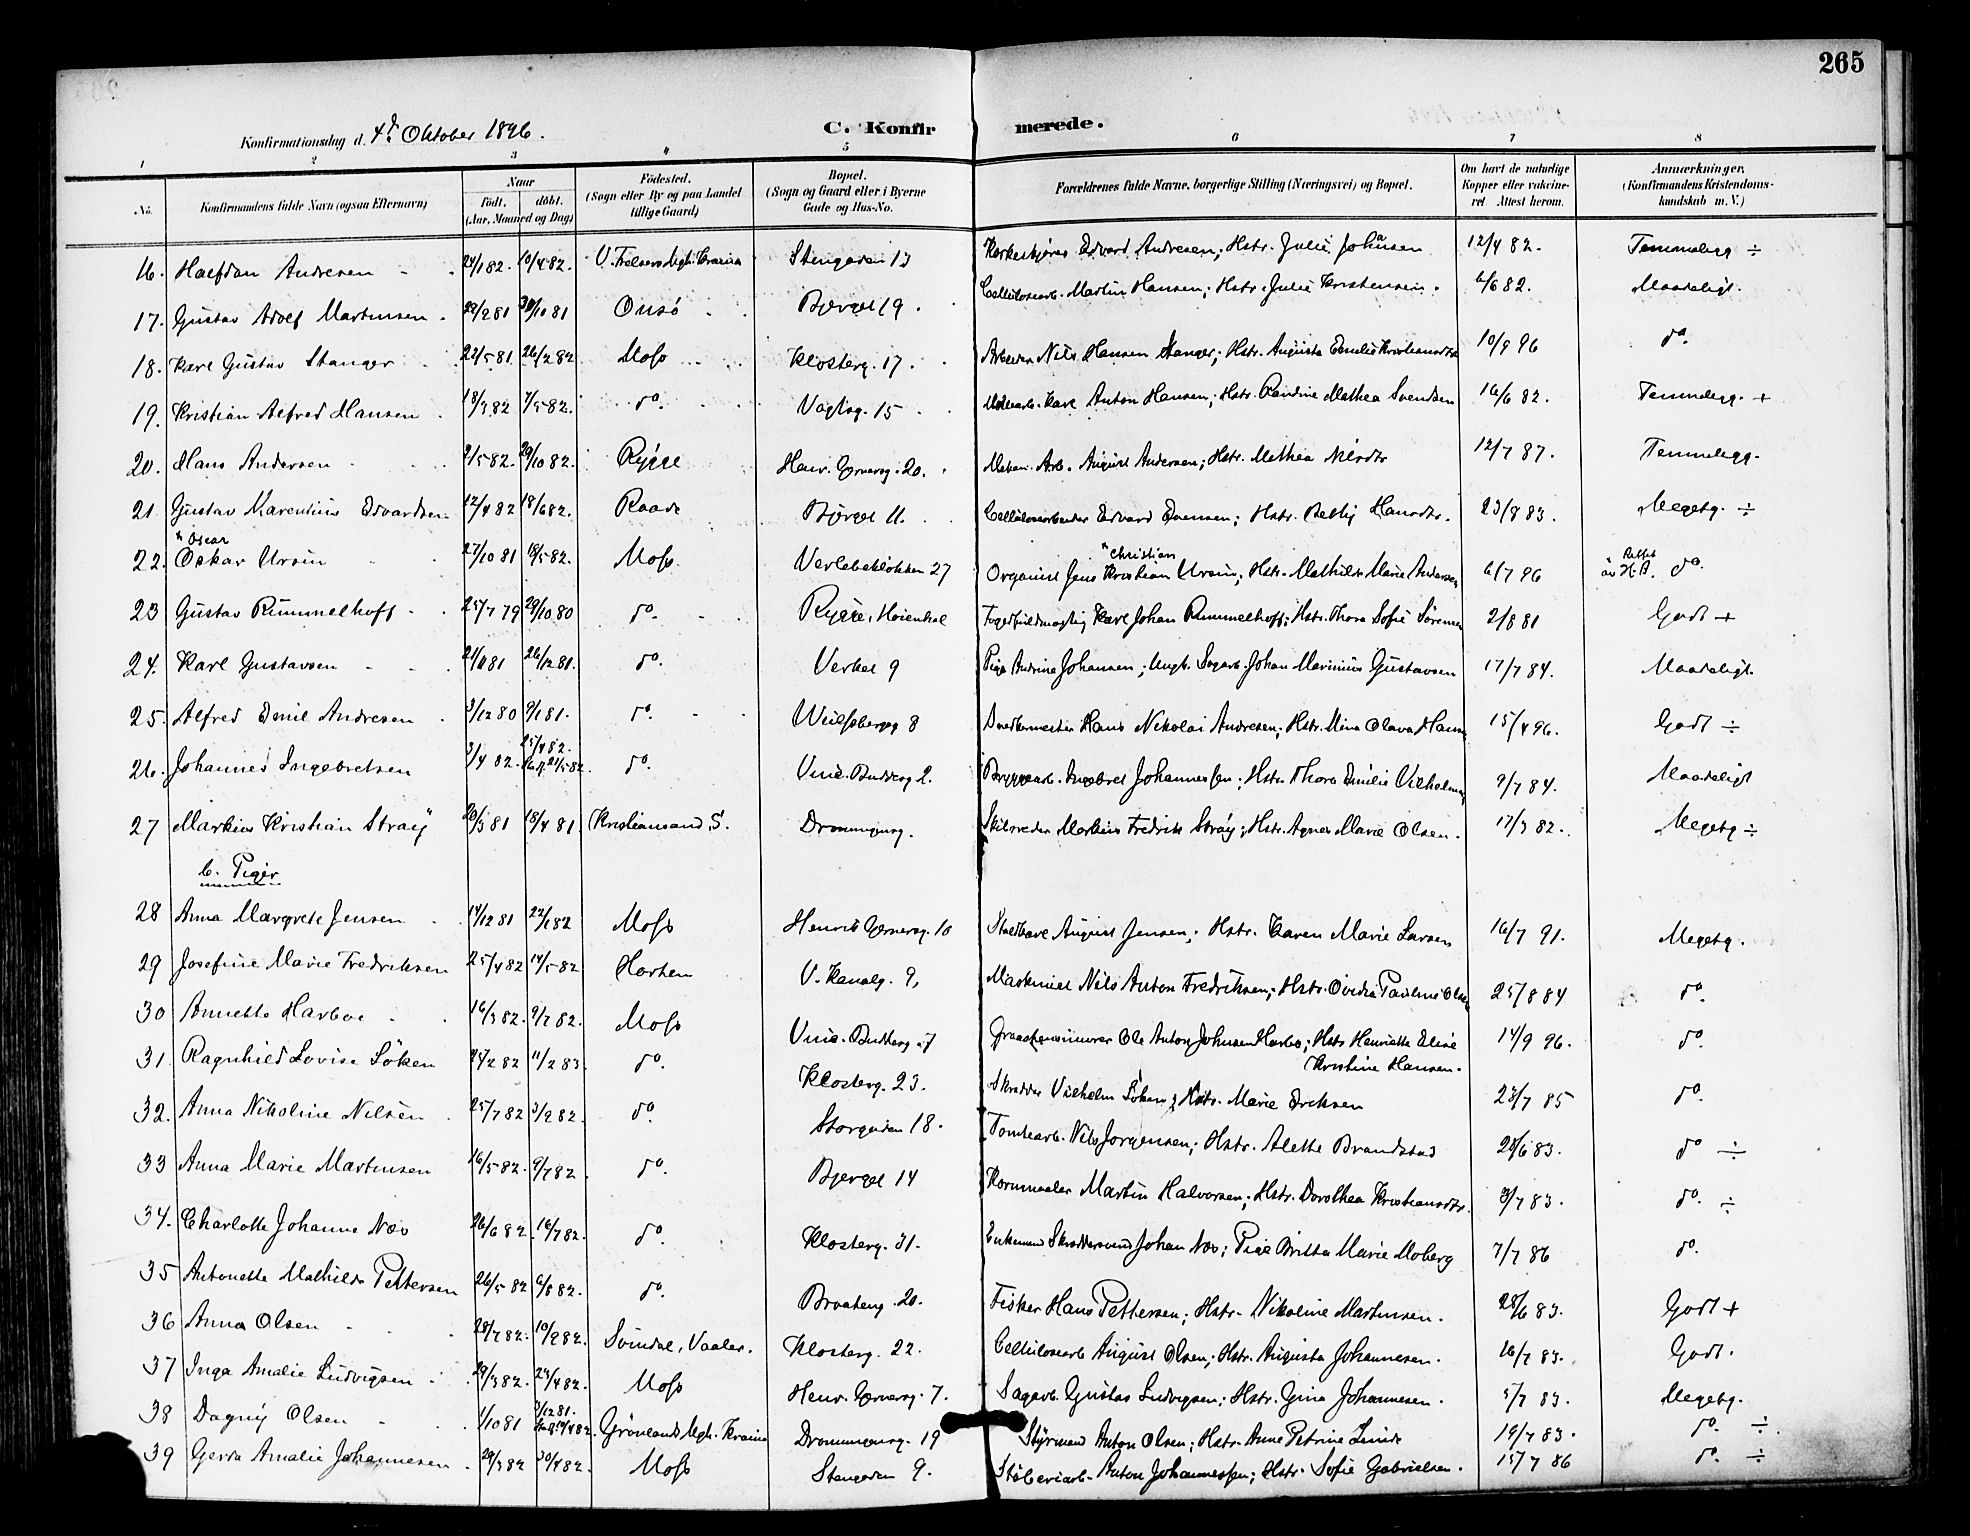 265
Konfirmationsdag d. 4de Oktober 1896.
C. Konfirmerede.
1 2 3 4 5 6 7 8
No. Konfirmandens fulde Navn (ogsaa Efternavn) Naar født. døbt. (Aar, Maaned og Dag) Fødested. (Sogn eller By og paa Landet tillige Gaard) Bopæl. (Sogn og Gaard eller i Byerne Gade og Hus-No. Forældrenes fulde Navne, borgerlige Stilling (Næringsvei) og Bopæl. Om havt de naturlige Kopper eller vakcineret Attest herom. Anmærkninger. (Konfirmandens Kristendomskundskab m. V.)
16. Halfdan Andresen 24/1 82. 10/4 82. Stengaden 13 Edvard Andresen; Hstr. Julie Johansen 12/4 82. Temmelegg ÷
17. Gustav Adolf Martinsen 29/2 81 30/10 81 Onsö Bjerget 19. Cellulosearb. Martin Hansen; Hstr. Julie Kristensen. 6/6 82. Maadeligt.
18. Karl Gustav Stanger 22/5 81 26/2 82 Moss Klosterg. 17. Arbeider Nils Hansen Stanger; Hstr. Augusta Emilie Kristiansdtr 10/9 96 do.
19. Kristian Alfred Hansen 18/3 82 7/5 82. do. Vogtsg. 15 Karl Anton Hansen; Hstr. Randine Mathea Svendsen 16/6 82. Temmelegg. +
20. Hans Andersen 2/5 82. 29/10 82. Rygge Henr. Gernersg. 20. Mekan. Arb. August Andersen; Hstr. Mathea Nilsdtr 12/7 87. Temmelegg.
21. Gustav Marentius Edvardsen 12/4 82 18/6 82. Raade Bjerget 11. Cellulosearbeider Edvard Evensen; Hstr. Hansdtr. 23/8 83. Megetg. ÷
22. Oskar Ursin x Oscar 27/10 81 18/5 82. Moss. Verlebakløkken 27 Organist Jens Kristian Ursin; x Christian Hstr. Mathilde Marie Andersen 6/7 96 do.
23 Gustav Rummelhoff 25/7 79 29/10 80 do. Rygge, Høienhal Fogedfuldmægtig Karl Johan Rummelhoff; Hstr. Thora Sofie Sörensen 2/8 81 Godt +
24. Karl Gustavsen 26/12 81. do. Verket 9 Pige Andrine Johansen; Ungk. Sagarb. Johan Marinius Gustavsen 17/7 84. Maadeligt.
25. Alfred Emil Andresen 3/12 80 9/1 81. do. 8 Hans Nikolai Andresen; Hstr. Mina Olava 15/4 96. Godt ÷
26. Johannes Ingebretsen 3/4 82. 25/4 82. 21/5 82. do. Vinc. Buddesg 2. Bryggearb. Ingebret Johannessen; Hstr. Thora Emilie Vilhelmine 9/7 84. Maadeligt
27 Markus Kristian Stray 20/3 81 18/4 81 Kristiansand S. Dronningsg. Skibsreder Markus Fredrik Stray; Hstr. Agnes Marie Olsen. 17/3 82. Megetg ÷
b. Piger
28 Anna Margrete Jensen 14/12 81 22/1 82 Moss Henrik Gernersg. 10 August Jensen; Hstr. Karen Marie Larsen 16/7 91. Megetg.
29 Josefine Marie Fredriksen 25/4 82 14/5 82 Horten V. Kanalg. 9, Maskinist Nils Anton Fredriksen; Hstr. Ovidia Pauline Olsen 25/8 84 do.
30 Annette Harboe 16/3 82. 9/7 82. Moss Vinc. Buddesg 7 Ole Anton Johnsen Harbo; Hstr Henriette Elise Kristine Hansen. 14/9 96. do.
31. Ragnhild Lovise Söken 24/2 82 11/2 83. do. Klosterg. 23. Skrædder Vilhelm Söken; Hstr. Marie Eriksen 23/7 85 do.
32. Anna Nikoline Nilsen 25/7 82 3/9 82. do. Storgaden 18. Tomtearb. Nils Jorgensen; Hstr. Alette Brandstad 28/6 83. do ÷
33 Anna Marie Martinsen 16/5 82. 9/7 82. do. Bjerget 14 Kornmaaler Martin Halvorsen; Hstr. Dorothea Kristiansdtr. 3/7 83. do. ÷
34. Charlotte Johanne Næs 26/6 82 16/7 82. do. Klosterg. 31. Enkemand Skræddersvend Johan Næs; Pige Britta Marie Moberg 7/7 86 do.
35 Antonette Mathilde Pettersen 26/5 82 6/8 82. do. Braateng. 20. Fisker Hans Pettersen; Hstr. Nikoline Martinsen. 28/6 83. Godt +
36 Anna Olsen 28/7 82. 10/9 82. Svindal, Vaaler. Klosterg. 22. Cellulosearb August Olsen; Hstr. Augusta Johannesen. 16/7 83. Godt.
37 Inga Amalie Ludvigsen 29/3 82. 24/4 82. Moss Henr. Gernersg. 7. Sagarb. Gustav Ludvigsen; Hstr. Gina Johannesen. 5/7 83. Megetg.
38 Dagny Olsen 1/10 81 3/12 81. Grönlands Mgh. Krania Dronningensg. 19 Styrmand Anton Olsen; Hstr. Anne Petrine Linde 19/7 83. do. ÷
39 Gerda Amalie Johannesen 29/3 82 30/4 82. Moss Stengaden 9. Støberiarb. Anton Johannessen; Hstr. Sofie Gabrielsen. 15/7 86 do. ÷